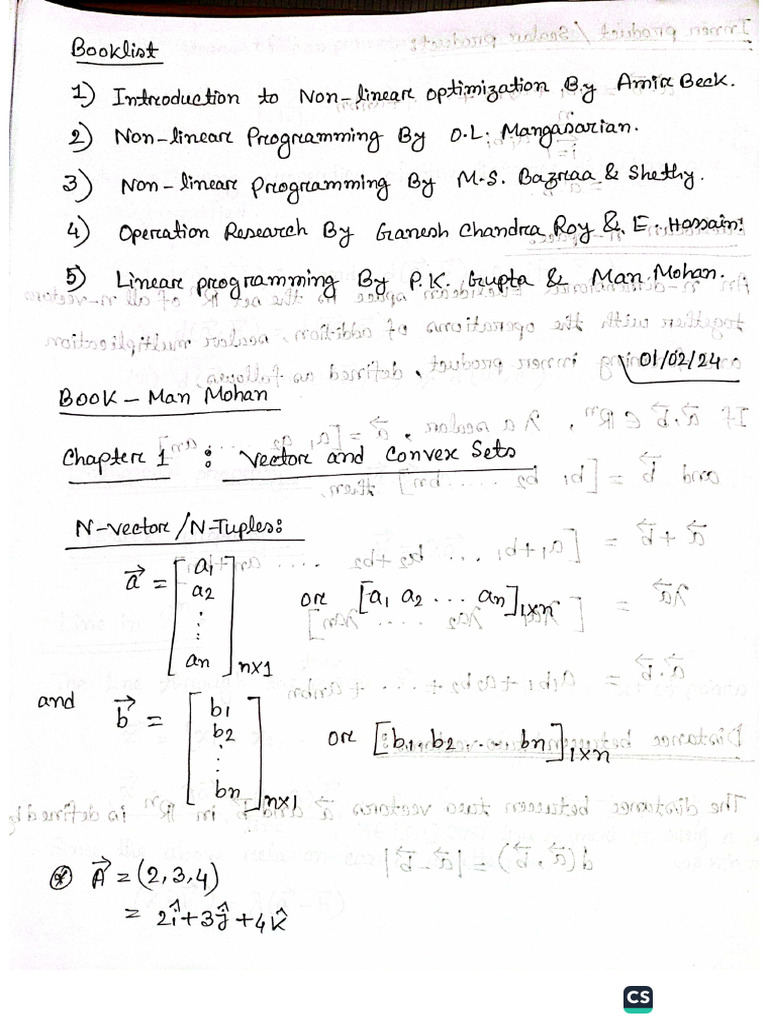 Booklist
1) Introduction to Non-linear optimization By Amir Beck.
2) Non-linear Programming By O.L. Mangasarian.
3) Non-linear Programming By M.S. Bazraa & Shethy.
4) Operation Research By Ganesh Chandra Roy & E. Hossain.
5) Linear programming By P.K. Gupta & Man Mohan.
01/02/24
BOOK - Man Mohan
Chapter 1 : Vector and Convex Sets
N-vector / N-Tuples:
a⃗ = [a1 a2 ⋮ an]n×1 or [a1 a2 ... an]1×n
and b⃗ = [b1 b2 ⋮ bn]n×1 or [b1, b2 ... bn]1×n
⊛ A⃗ = (2,3,4)
= 2î+3ĵ+4k̂
CS